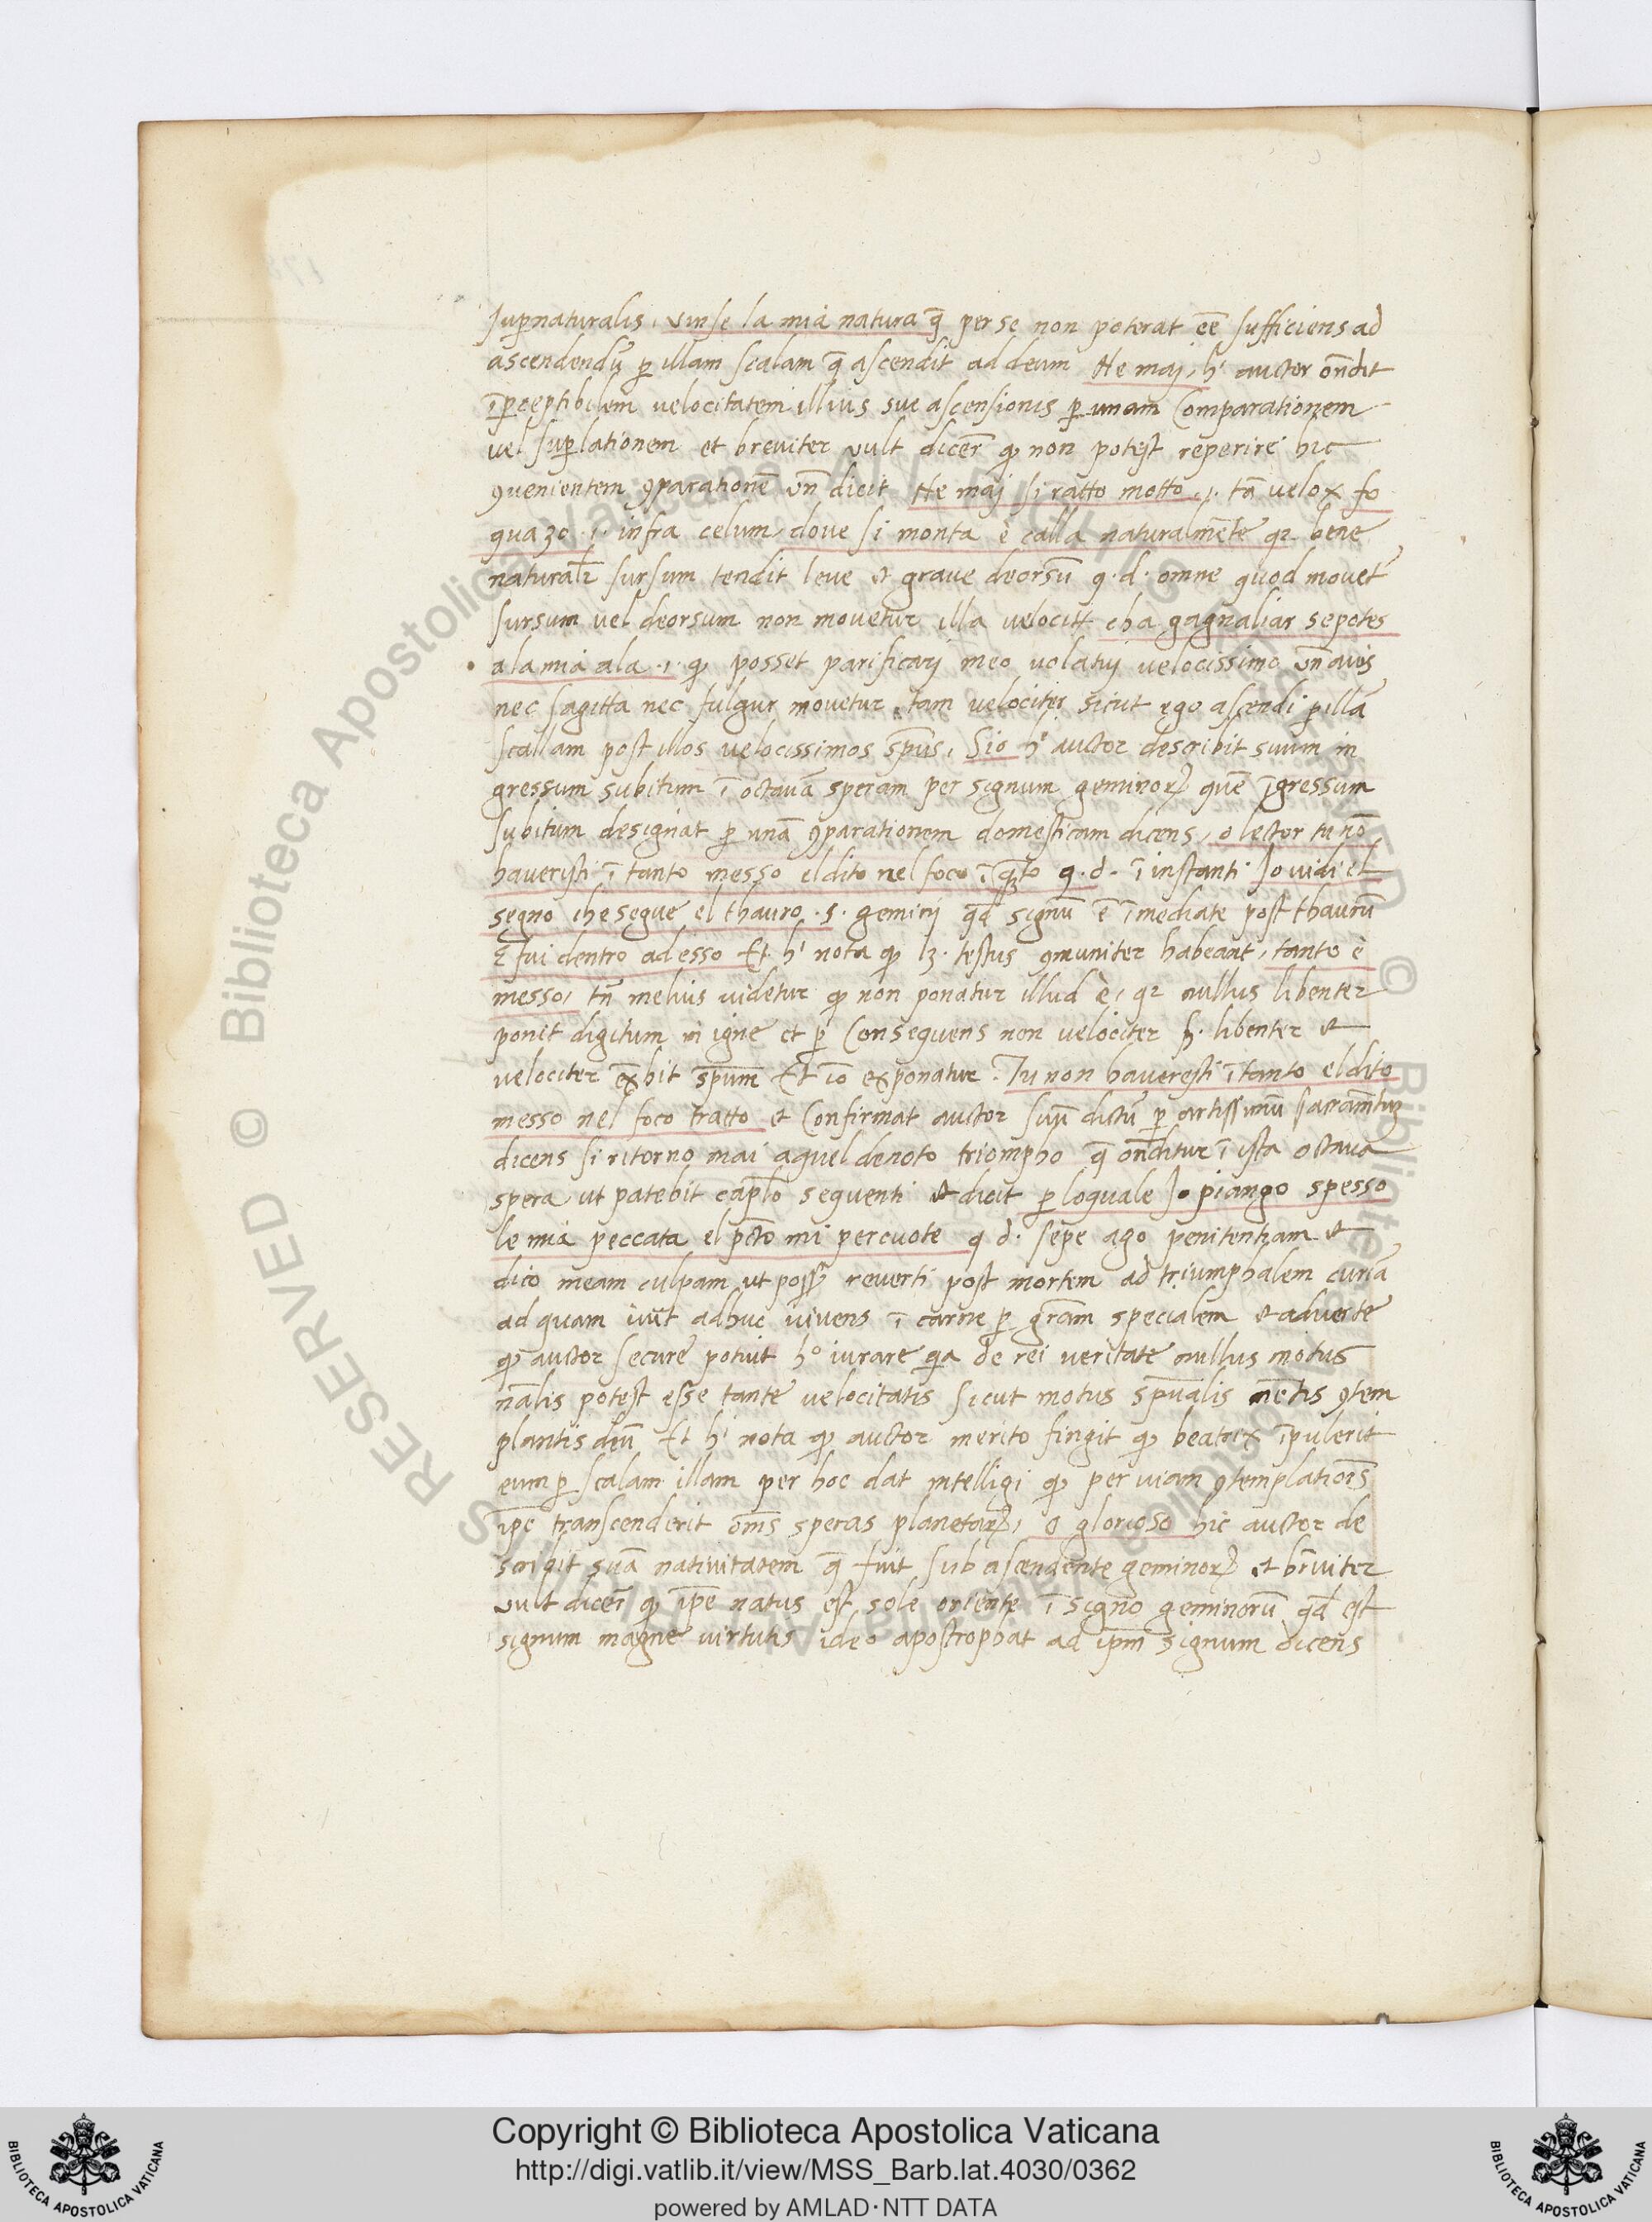 suꝑnaturalis, vinse la mia natura q̄ per se non poterat eē sufficiens ad
ascendendū ꝑ illam scalam q̄ ascendit ad deum Ne maj, hⁱ auctor on̄dit
īꝑceptibilem velocitatem illius sue ascensionis ꝑ unam Comparationem
vel suꝑlationem et breviter vult dicer̄ qꝫ non potest reperire hic
ꝯuenientem ꝯparationē vn̄ dicit Ne maj si ratto motto .i. tā velox fo
qua30 .i. infra celum, dove si monta è calla naturalmēte qꝛ bene
naturalꝛ sursum tendit leve et grave deorsū q.d. omne quod movet̄
sursum vel deorsum non movetur illa velocitt cha gagnaliar sepotes
ala mia ala .i. qꝫ posset parificarj meo volatuj velocissimo vn̄ avis
nec sagitta nec fulgur movetur tam velociter sicut ego ascendi ꝑ illā
scallam post illos velocissimos spūs, Sio hⁱ auctor describit suum in
gressum subitum ī octavā speram per signum geminorꝝ quē īgressum
subitum designat ꝑ unā ꝯparationem domesticam dicens, o lector tu nō
haveristi ī tanto messo el dito nel foco ī q̄to q.d. ī instanti Jo vidi el
segno che segue el thauro .s. geminj qd̄ signū ē īmediate post thaurū
⁊ fui dentro ad esso Et hⁱ nota qꝫ lꝫ. testus ꝯmuniter habeant, tanto è
messo, tn̄ melius videtur qꝫ non ponatur illud è, qꝛ nullus libenter
ponit digitum in igne et ꝑ Consequens non velociter s. libenter et
velociter ex̄bit spūm Et iō exponatur. Tu non haveresti ī tanto el dito
messo nel foco tratto et Confirmat auctor suū dictū ꝑ artissimū sacramm̄tuꝫ
dicens si ritorno mai aquel denoto triompho q̄ on̄ditur ī ista octava
spera ut patebit capl̄o sequenti et dicit ꝑ loquale Jo piango spesso
le mia peccata el pc̄to mi percuote q d. sepe ago penitentiam et
dico meam culpam ut possꝫ reverti post mortem ad triumphalem curiā
ad quam ivit adhuc vivens ī carne ꝑ grām specialem et adverte
qꝫ auctor secure potuit hº iurare qia de rei veritate nullus motus
nālis potest esse tante velocitatis sicut motus spūalis mētis ꝯtem
plantis deū Et hⁱ nota qꝫ auctor merito fingit qꝫ beatrix īpulerit
eum ꝑ scalam illam per hoc dat intelligi qꝫ per viam ꝯtemplatiōis
ipē transcenderit om̄s speras planetarꝝ, O glorioso hic auctor de
scribit suā nativitatem q̄ fuit sub ascendente geminorꝝ et br̄viter
vult dicer̄ qꝫ ipē natus est sole oriente ī signo geminorū qd̄ est
signum magne virtutis ideo apostrophat ad ipm̄ signum dicens
Copyright © Biblioteca Apostolica Vaticana
http://digi.vatlib.it/view/MSS_Barb.lat.4030/0362
powered by AMLAD·NTT DATA